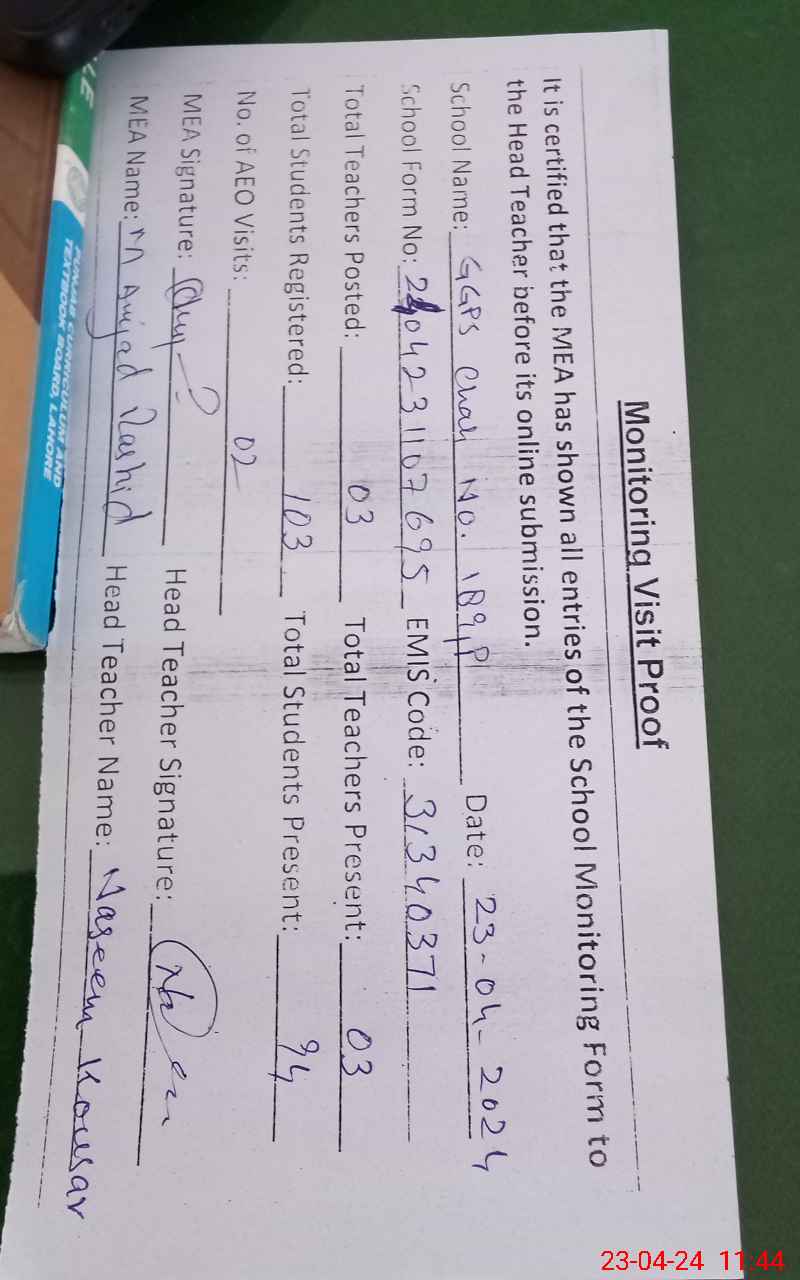 Monitoring Visit Proof
It is certified that the MEA has shown all entries of the School Monitoring Form to
the Head Teacher before its online submission.
School Name: GGPS Chak No. 189,P Date: 23-04-2024
School Form No: 240423107695 EMIS Code: 31340371
Total Teachers Posted: 03 Total Teachers Present: 03
Total Students Registered: 103 Total Students Present: 94
No. of AEO Visits: 02
MEA Signature: Head Teacher Signature:
MEA Name: M Amjad Rashid Head Teacher Name: Naseem Kousar
PUNJAB CURRICULUM AND
TEXTBOOK BOARD, LAHORE
23-04-24 11:44